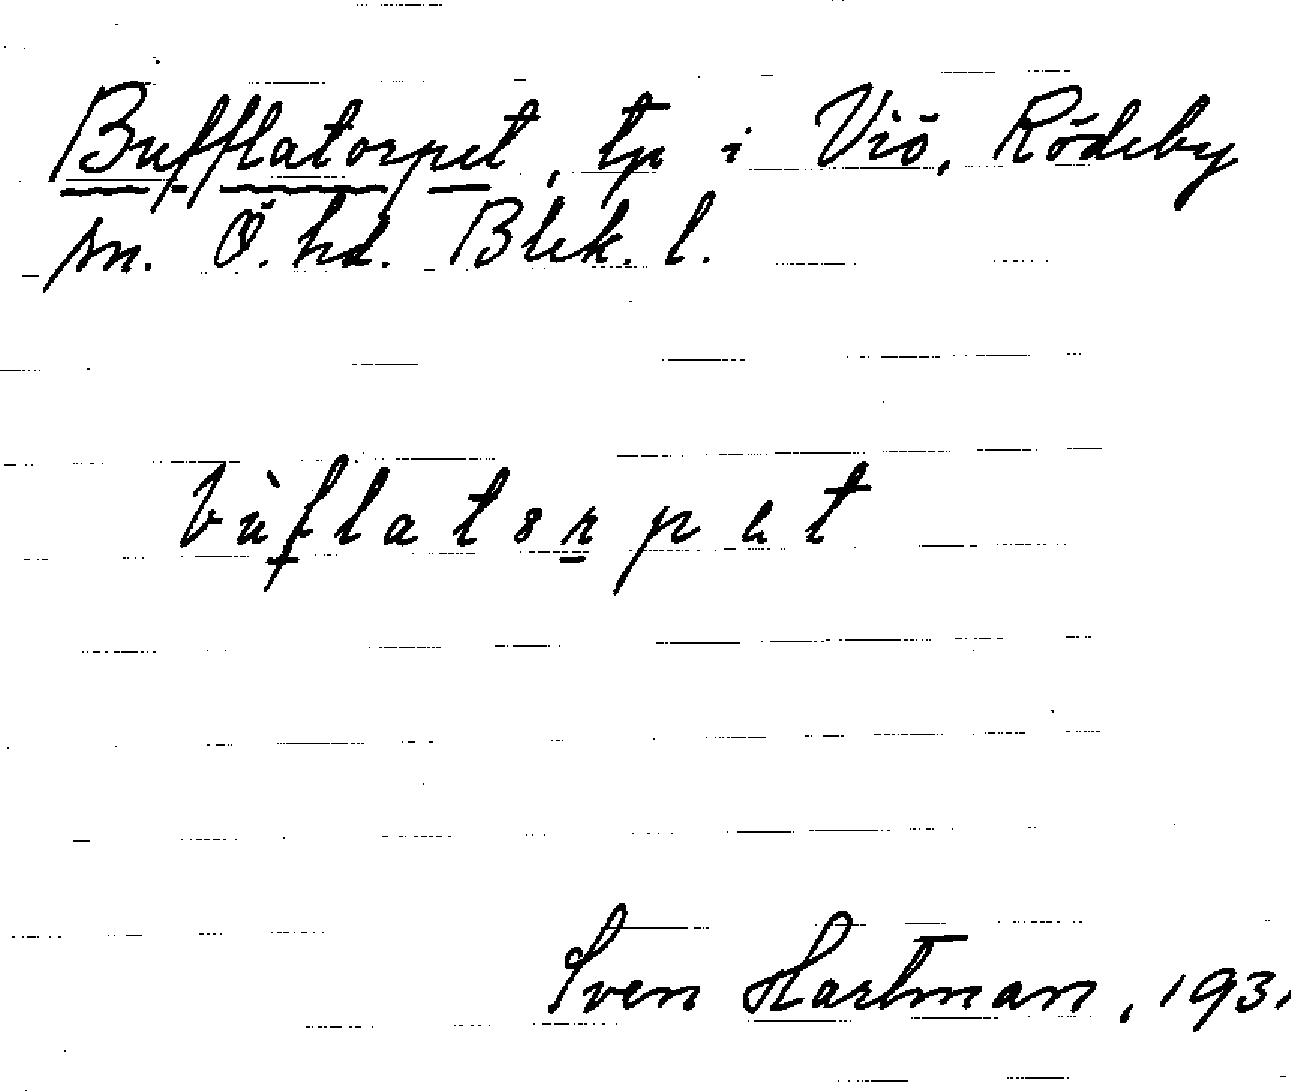 Bufflatorpet, tp i Viö, Rödeby
sn. Ö. hd. Blek. l.
bùflatorpet
Sven Hartman, 1931